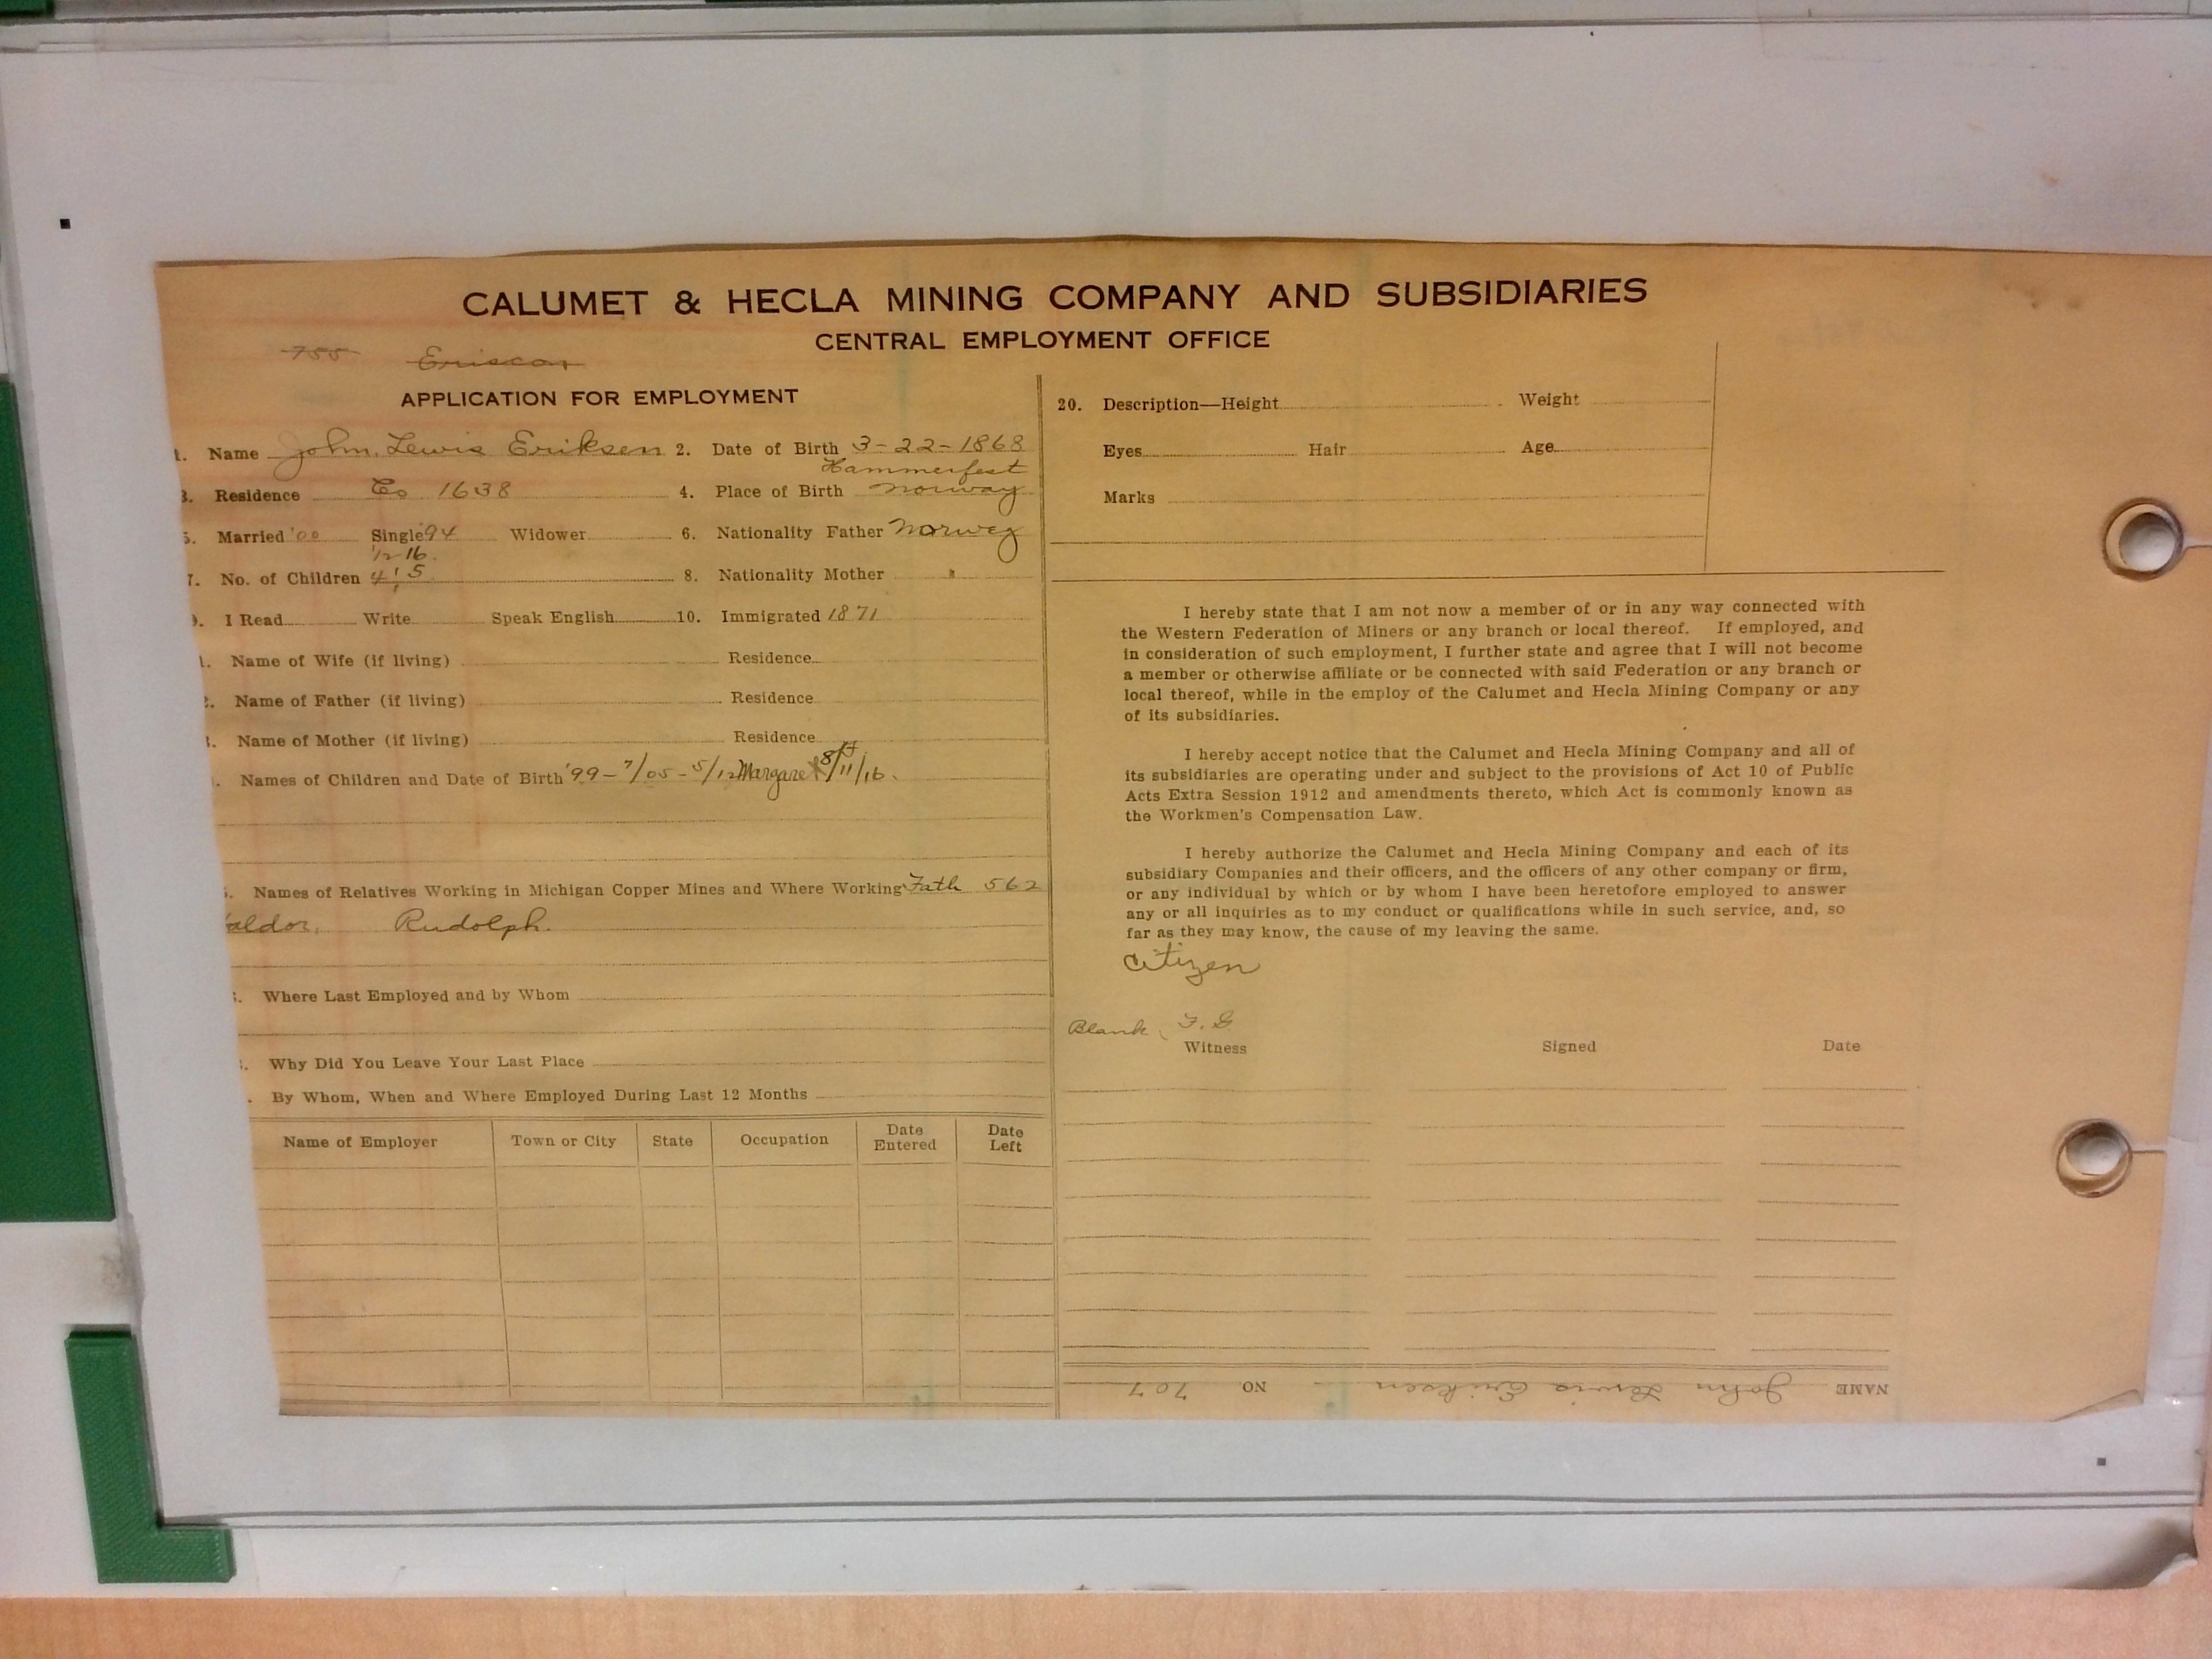 CALUMET & HECLA MINING COMPANY AND SUBSIDIARIES
CENTRAL EMPLOYMENT OFFICE
755 Ericson
APPLICATION FOR EMPLOYMENT
1. Name John Lewis Eriksen 2. Date of Birth 3-22-1868
Hammerfest
3. Residence Co 1638 4. Place of Birth Norway
5. Married '00 Single '94 Widower 6. Nationality Father Norweg
'12 16
7. No. of Children 4 5 8. Nationality Mother "
9. I Read Write Speak English 10. Immigrated 1871
1. Name of Wife (if living) Residence
2. Name of Father (if living) Residence
3. Name of Mother (if living) Residence
Names of Children and Date of Birth '99 - 7/05 - 5/12 Margaret 8/11/16.
Names of Relatives Working in Michigan Copper Mines and Where Working Fath 562
aldor, Rudolph.
Where Last Employed and by Whom
Why Did You Leave Your Last Place
By Whom, When and Where Employed During Last 12 Months
Name of Employer Town or City State Occupation Date Entered Date Left
20. Description—Height Weight
Eyes Hair Age
Marks
I hereby state that I am not now a member of or in any way connected with
the Western Federation of Miners or any branch or local thereof. If employed, and
in consideration of such employment, I further state and agree that I will not become
a member or otherwise affiliate or be connected with said Federation or any branch or
local thereof, while in the employ of the Calumet and Hecla Mining Company or any
of its subsidiaries.
I hereby accept notice that the Calumet and Hecla Mining Company and all of
its subsidiaries are operating under and subject to the provisions of Act 10 of Public
Acts Extra Session 1912 and amendments thereto, which Act is commonly known as
the Workmen's Compensation Law.
I hereby authorize the Calumet and Hecla Mining Company and each of its
subsidiary Companies and their officers, and the officers of any other company or firm,
or any individual by which or by whom I have been heretofore employed to answer
any or all inquiries as to my conduct or qualifications while in such service, and, so
far as they may know, the cause of my leaving the same.
Citizen
Blank F. G
Witness Signed Date
NAME John Lewis Eriksen NO. 707